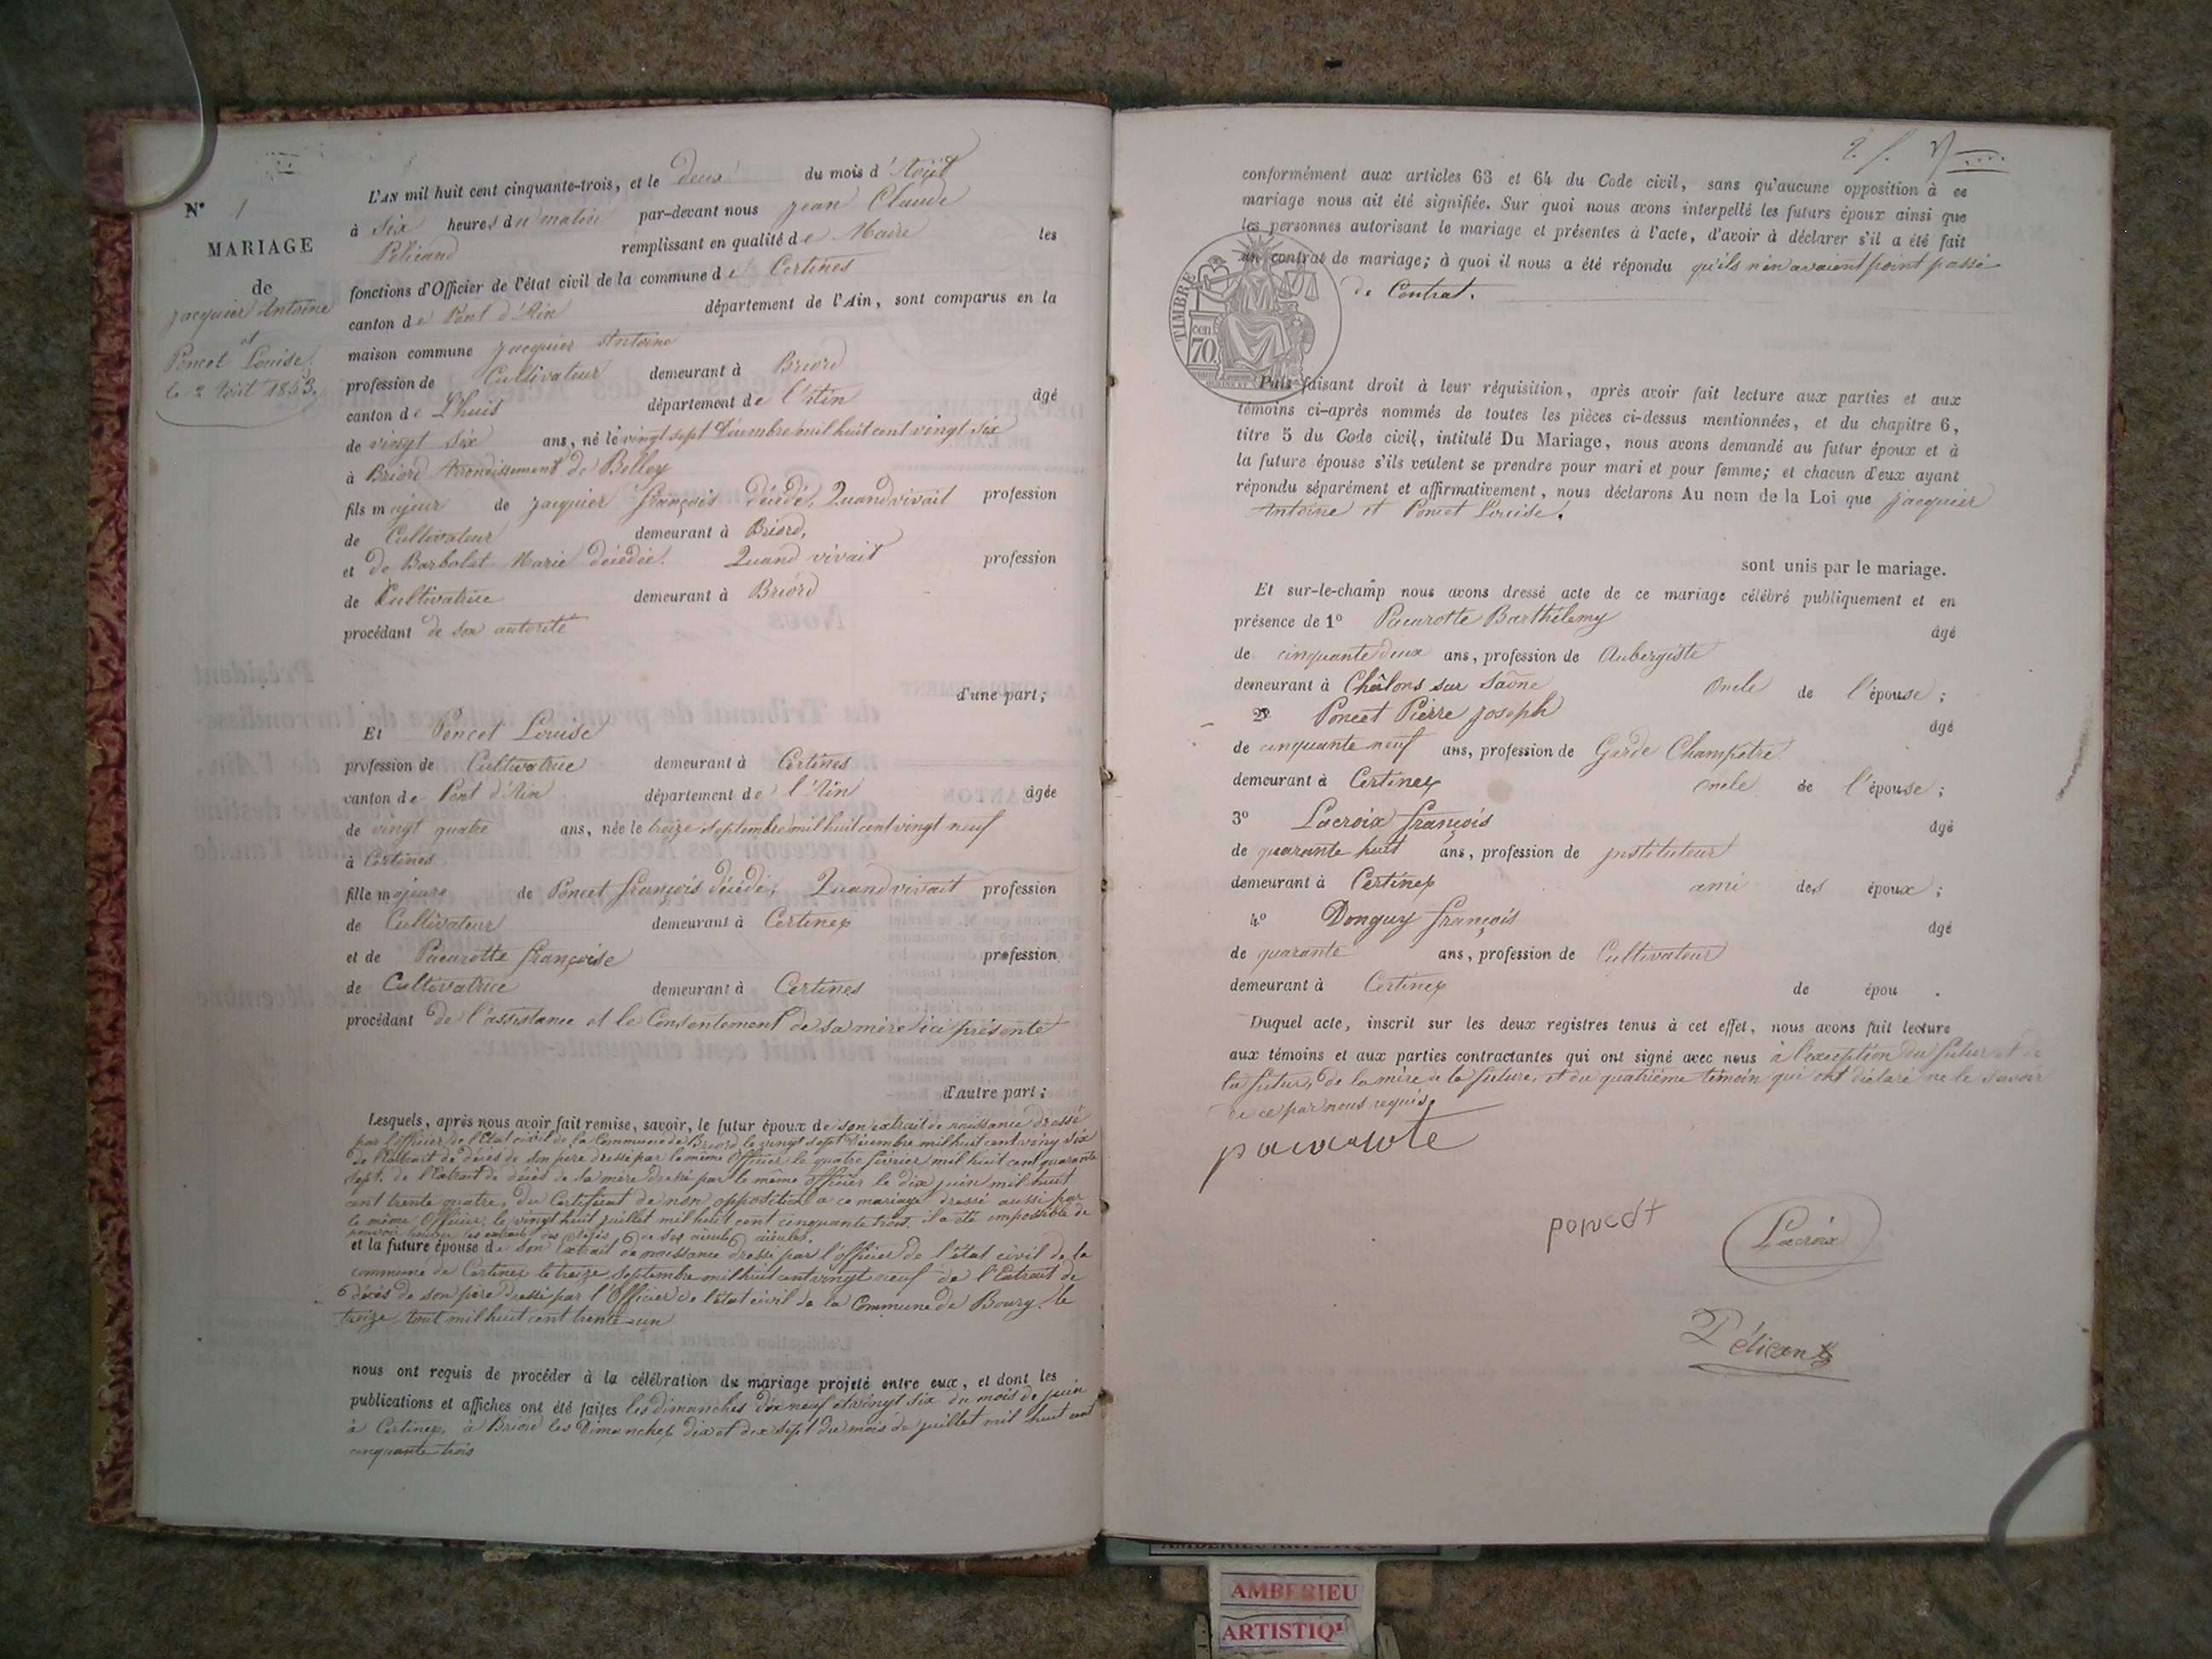 N° 1
MARIAGE
de
Jacquier Antoine
et
Poncet Louise,
le 2 Août 1853.
L'AN mil huit cent cinquante-trois, et le deux du mois d'Août
à six heures du matin par-devant nous Jean Claude
Pélicand remplissant en qualité de Maire les
fonctions d'Officier de l'état civil de la commune de Certines
canton de Pont d'Ain département de l'Ain, sont comparus en la
maison commune Jacquier Antoine
profession de Cultivateur demeurant à Briord
canton de L'huis département de l'Ain âgé
de vingt six ans, né le vingt sept Décembre mil huit cent vingt six
à Briord Arrondissement de Belley
fils majeur de Jacquier françois décédé, Quand vivait profession
de Cultivateur demeurant à Briord,
et de Barbolat Marie décédée. Quand vivait profession
de Cultivatrice demeurant à Briord
procédant de son autorité
d'une part;
Et Poncet Louise
profession de Cultivatrice demeurant à Certines
canton de Pont d'Ain département de l'Ain âgée
de vingt quatre ans, née le treize septembre mil huit cent vingt neuf
à Certines
fille majeure de Poncet françois décédé, Quand vivait profession
de Cultivateur demeurant à Certines
et de Pacurotte françoise profession
de Cultivatrice demeurant à Certines
procédant de l'assistance et le Consentement de sa mère ici présente
d'autre part;
Lesquels, après nous avoir fait remise, savoir, le futur époux de son extrait de naissance dressé
par l'officier de l'Etat civil de la Commune de Briord le vingt sept Décembre mil huit cent vingt six
de l'Extrait de décès de son père dressé par le même Officier le quatre février mil huit cent quarante
sept. de l'Extrait de décès de sa mère dressé par le même officier le dix juin mil huit
cent trente quatre, du Certificat de non opposition à ce mariage dressé aussi par
le même Officier, le vingt huit juillet mil huit cent cinquante trois, il a été impossible de
pouvoir trouver les extraits des décès de ses aieuls aieules.
et la future épouse de son Extrait de naissance dressé par l'officier de l'état civil de la
commune de Certines le treize septembre mil huit cent vingt neuf de l'Extrait de
décès de son père dressé par l'Officier de l'état civil de la Commune de Bourg le
treize Aout mil huit cent trente un
nous ont requis de procéder à la célébration du mariage projeté entre eux, et dont les
publications et affiches ont été faites les dimanches dix neuf et vingt six du mois de juin
à Certines, à Briord les Dimanches dix et dix sept du mois de juillet mil huit cent
cinquante trois
conformément aux articles 63 et 64 du Code civil, sans qu'aucune opposition à ce
mariage nous ait été signifiée. Sur quoi nous avons interpellé les futurs époux ainsi que
les personnes autorisant le mariage et présentes à l'acte, d'avoir à déclarer s'il a été fait
un contrat de mariage; à quoi il nous a été répondu qu'ils n'en avaient point passé
de Contrat.
TIMBRE
cen.
70.
Puis faisant droit à leur réquisition, après avoir fait lecture aux parties et aux
témoins ci-après nommés de toutes les pièces ci-dessus mentionnées, et du chapitre 6,
titre 5 du Code civil, intitulé Du Mariage, nous avons demandé au futur époux et à
la future épouse s'ils veulent se prendre pour mari et pour femme; et chacun d'eux ayant
répondu séparément et affirmativement, nous déclarons Au nom de la Loi que Jacquier
Antoine et Poncet Louise.
sont unis par le mariage.
Et sur-le-champ nous avons dressé acte de ce mariage célébré publiquement et en
présence de 1° Pacurotte Barthélemy âgé
de cinquante deux ans, profession de Aubergiste
demeurant à Châlons sur Saône Oncle de l'épouse;
2° Poncet Pierre Joseph âgé
de cinquante neuf ans, profession de Garde Champêtre
demeurant à Certines oncle de l'épouse;
3° Lacroix françois âgé
de quarante huit ans, profession de Instituteur
demeurant à Certines ami des époux;
4° Donguy françois âgé
de quarante ans, profession de Cultivateur
demeurant à Certines de épou .
Duquel acte, inscrit sur les deux registres tenus à cet effet, nous avons fait lecture
aux témoins et aux parties contractantes qui ont signé avec nous à l'exception du futur et de
la future, de la mère de la future, et du quatrième témoin qui ont déclaré ne le savoir
de ce par nous requis.
Poncedt
Lacroix
Pélicand
AMBERIEU
ARTISTIQ